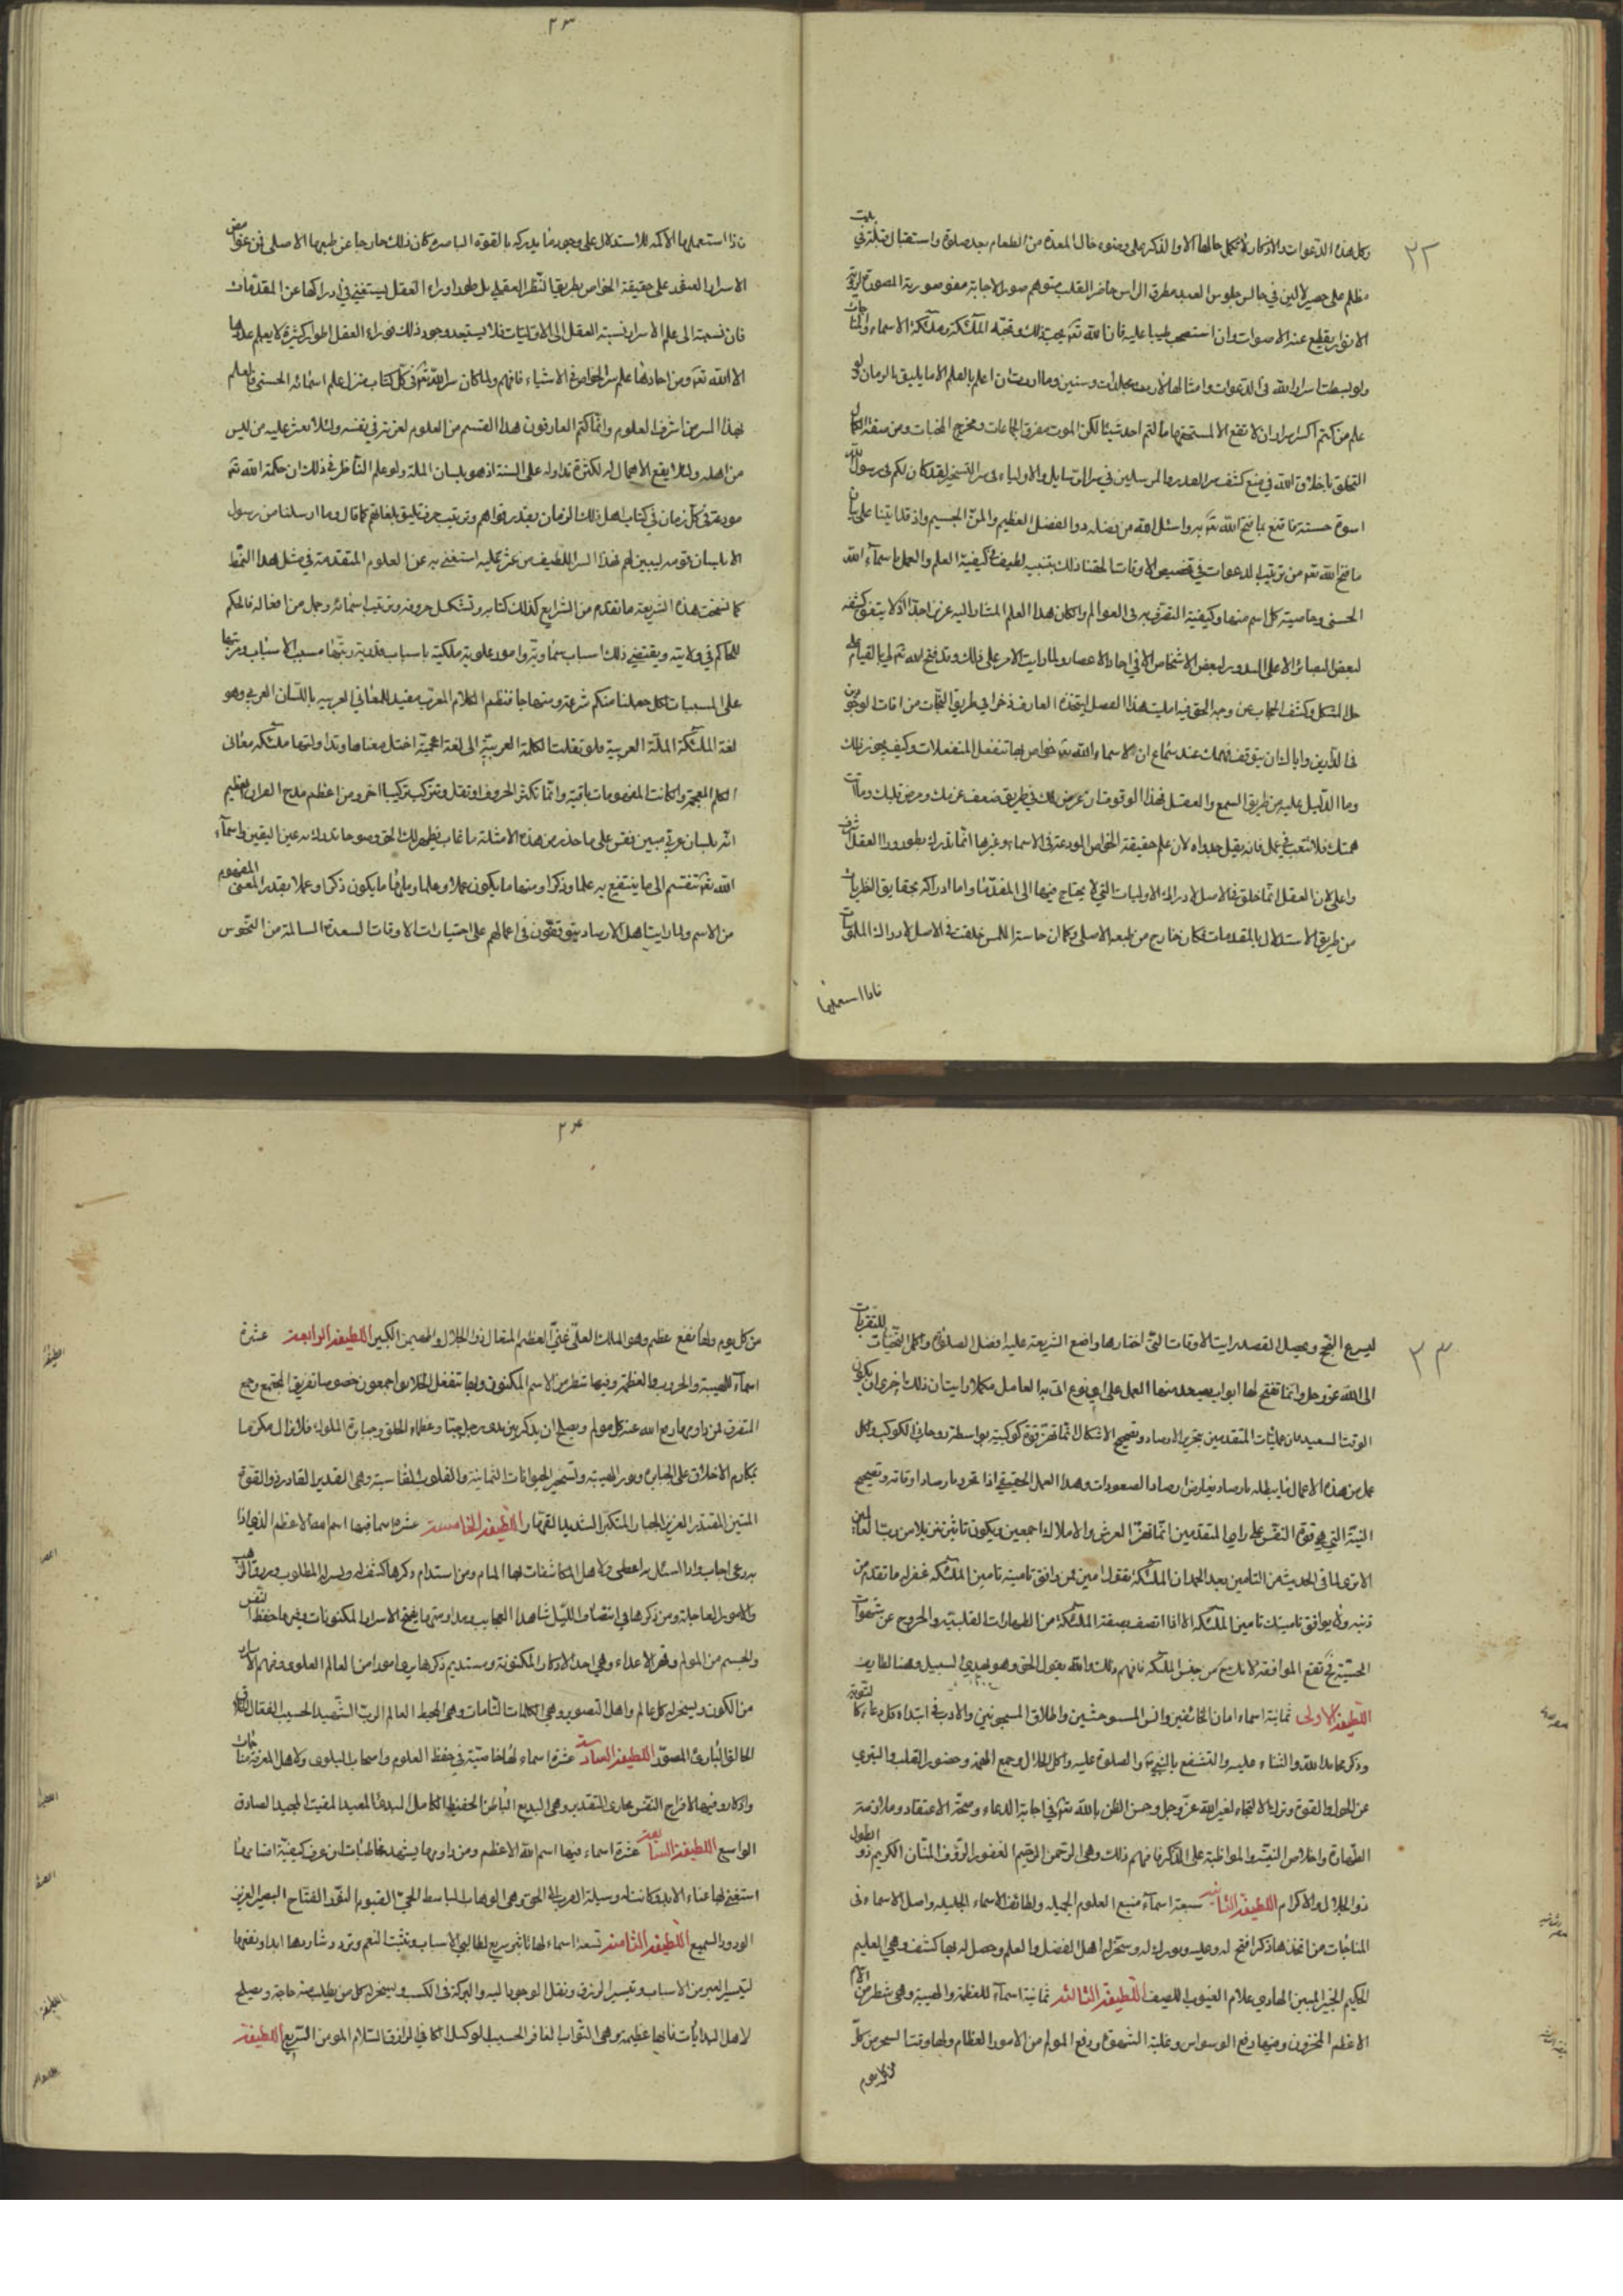 ٢٢
وكل هذه الدعوات والاذكار لا تحمل حالها الا والذاكر على وضوء خال المعدة من الطعام بعد صلوة واستقبال قبلة في بيت
مظلم على حصير لا لين في جالس جلوس العبد مطرق الراس حاضر القلب متوهم صور الاجابة
الانوار يقطع عنه الاصوات وان استصحب طيبا عليه فان الله تعه يحب ذلك وتحبه الملئكة وملئكة الاسماء
ولو بسطت اسرار الله فى الدعوات وامثالها لملأت مجلدات وسنين وما اردت ان اعلم بالعلم الا ما يليق بالزمان
علم من كتم اسراره ان لا تقع الا لمستحقها ما كتم احد شيئا لكن الموت مفرق الجماعات ومخرج المخبات ومن صفة الكمال
التخلق باخلاق الله في منع كشف سر القدر والمرسلين في سر الرسايل والاولياء فى سر التسخير لقد كان لكم فى رسول الله
اسوة حسنة فاقنع بما فتح الله تعه به واسئل الله من فضله ذوا الفضل العظيم والمن الجسيم واذ قد اتينا على بيان
ما فتح الله تعه من ترتيب الدعوات في تخصيص الاوقات الحقنا ذلك بتنبيه لطيف في كيفية العلم والعمل باسماء الله
الحسنى وخاصية كل اسم منها وكيفية التصرف به فى العوالم ولما كان هذا العلم المشار اليه عزيز اجدا اذ لا يتفق كشفه
لبعض البصائر الا على الندور لبعض الاشخاص الا في احاد الاعصار ولما رايت الامر على ذلك وقد فتح الله تعه لى بالقيام على
حل المشكل وكشف الحجاب عن وجه الحق فيه امليت هذا الفصل ليتخذه العارف ذخرا في طريق النجاة من افات الوجود
فى الدارين واياك ان يتوقف فهمك عند سماع ان الاسماء الله تعه خواص بها تنفعل المنفعلات وكيف يجوز ذلك
وما الدليل عليه من طريق السمع والعقل فهذا الوقوف ان عرض لك في طريق ضعف عزمك ومرض قلبك وماتت
همتك فلا تتعب في عمل فانه يقل جدواه لان علم حقيقة الخواص المودعة فى الاسماء وغيرها انما تدرك بطور ورا العقل
واعلم لان العقل انما خلق فالاصل لادراك الاوليات التي لا يحتاج فيها الى المقدمات واما ادراكه بحقايق النظريات
من طريق الاستدلال بالمقدمات فكان خارج من طبعه الاصلي وكما ان حاسة اللمس خلقت في الاصل لادراك الملموسات
فاذا استعملها
٢٣
فاذا استعملها الاكمه للاستدلال على وجود ما يدركه بالقوة الباصرة كان ذلك خارجا عن طبعها الاصلى فمن غوامض
الاسرار العثور على حقيقة الخواص بطريق النظر العقلي بل طور اوراء العقل يستغني في ادراكها عن المقدمات
فان نسبته الى علم الاسرار نسبة العقل الى الاوليات فلا يستبعد وجود ذلك فوراء العقل اطوار كثيرة لا يعلم عددها
الا الله تعه ومن احادها علم سر الخواص في الاشياء فافهم ولما كان سر الله تعه في كل كتاب منزل علم اسمائه الحسنى فالعلم
بهذا السر من اشرف العلوم وانما كتم العارفون هذا القسم من العلوم لعزته في نفسه ولئلا يعثر عليه من ليس
من اهله ولئلا يقع الاهمال له لكثرة تداوله على السنة اذ هو بلسان الملة ولو علم الناظر في ذلك ان حكمة الله تعه
مودعة في كل زمان في كتاب اهل ذلك الزمان بقدر قواهم وترتيب حرف تليق بلغاتهم كما قال وما ارسلنا من رسول
الا بلسان قومه ليبين لهم فهذا السر اللطيف من عثر عليه استغنى به عن العلوم المتقدمة في مثل هذا النمط
كما نسخت هذه الشريعة ما تقدم من الشرايع كذلك كتابه وتشكل حروفه وترتيب اسمائه وجمل من افعاله فالحكم
للحاكم في ولايته ويقتضي ذلك اسباب سماوية وامور علوية ملكية باسباب قلمية رتبها مسبب الاسباب ورتبها
على المسببات لكل جعلنا منكم شرعة ومنهاجا فنظم الكلام المعرب مفيد للمعاني العربيه باللسان العربي وهو
لغة الملئكة الملة العربية فلو نقلت الكلمة العربية الى لغة اعجمية اختل معناها وتداولتها ملئكة معانى
الكلم المعجمة وان كانت المفهومات باقية وانما تكثر الحروف او تقل وتتركب تركيبا اخر ومن اعظم مدح القران العظيم
انه بلسان عربي مبين فقس على ما حذر من هذه الامثلة ما غاب يظهر لك الحق وضوحا تدرك به عين اليقين واسماء
الله تعه تنقسم الى ما ينتفع به علما وذكرا ومنها ما يكون عملا وعلما ومنها ما يكون ذكرا وعملا بقدر المعنى المفهوم
من الاسم ولما رايت اهل الارصاد يتوقفون في اعمالهم على اختيارات الاوقات السعدة السالمة من النحوس
٣٣
ليسرع النجح ويحصل القصد رايت الاوقات التى اختارها واضع الشريعة عليه افضل الصلوة واكمل التحيات للتقربات
الى الله عز وجل وانما تفتح لها ابواب يصعد منها العمل على اي نوع اتى به العامل مكملا ورايت ان ذلك احرى ان يكون
الوقت السعيد فان عمليات المتقدمين بتحرير الارصاد وتصحيح الاشكال انما تحرز قوة كوكبية بواسطة روحانى الكوكب وكل
عمل من هذه الاعمال ما يبطله بارصاد يعارض ارصادا لصعودات وهذا العمل الحقيقي اذا تحرر بارصاد اوقاته وتصحيح
النية التي هي قوة النفس على راي المتقدمين انما تحرز العرش والاملاك اجمعين ويكون تاثيره تنزيلا من رب العالمين
الا ترى لما فى الحديث من التامين بعد الحمد ان الملئكة تقول امين فمن وافق تامينه تامين الملئكة غفر له ما تقدم من
ذنبه ولا يوافق تامينك تامين الملئكة الا اذا اتصف بصفة الملئكة من الطهارات القلبية والخروج عن شهوات
الحسية في تقع الموافقة لانك ح من جنس الملئكة فافهم ذلك والله يقول الحق وهو يهدي السبيل وهنا لطايف
اللطيفة الاولى ثمانية اسماء امان الخائفين وانس المستوحشين واطلاق المسجونين والادب في ابتداء كل دعاء كالتوبة
وذكر محامد الله والثناء عليه والتشفع بالنبي ص والصلوة عليه واكل الحلال وجمع الهمة وحضور القلب والتبري
عن الحول والقوة وترك الالتجاء لغير الله عز وجل وحسن الظن بالله تعه في اجابة الدعاء وصحة الاعتقاد وملازمة
الطهارة واخلاص النية والمواظبة على الذكر فافهم ذلك وهي الرحمن الرحيم الغفور الرؤف المنان الكريم ذو الطول
ذو الجلال والاكرام اللطيفة الثانية سبعة اسماء منبع العلوم الجميله ولطائف الاسماء الجليله واصل الاسماء فى
المناجات من اتخذها ذكرا فتح له وعليه وبورك له وسخر له اهل الفضل والعلم وحصل له بها كشف وهي العليم
الحكيم الخبير المبين الهادي علام الغيوب اللطيف اللطيفة الثالثة ثمانية اسماء للعظمة والهيبة وهي شطر من الاسم
الاعظم المخزون ومنها دفع الوسواس وغلبة الشهوة ودفع المولم من الامور العظام ولها وقت السحر من كل
من كل يوم
٢٤
من كل يوم ولها نفع عظيم وهو الملك العلي الغني العظيم المتعال ذو الجلال والمهيمن الكبير اللطيفة الرابعة عشرة
اسماء للهيبة والحروب والعظمة وفيها شطر من الاسم المكنون ولها تنفعل الخلايق اجمعون خصوصا تفريق المجتمع وجمع
المتفرق لمن داوم بها دفع الله عنه كل مولم ويصلح ان يذكر بين يدى رجل جبار وعظماء الخلق وجبابرة الملوك فلا يزال مكرما
بمكارم الاخلاق على الجبابرة ونور الهيبة وتسخير الحيوانات النمانية والقلوب القاسية وهى القدير القادر ذو القوة
المتين المقتدر العزيز الجبار المتكبر الشديد القهار اللطيفة الخامسة عشرة اسما فيها اسم الله الاعظم الذي اذا
به دعى اجاب واذا سئل به اعطى ولاهل المكاشفات بها المام ومن استدام ذكرها كشف له ويسر له المطلوب
والامور العاجلة ومن ذكرها في انتصاف الليل شاهد العجايب ومداومتها يفتح الاسرار المكنونات وفيها حفظ النفس
والجسم من المولم وقهر الاعداء وهي احد الاذكار المكنونة ومستديم ذكرها يرى امورا من العالم العلوى وفهم الاسرار
من الكون ويسخر له كل عالم واهل التصوير وهي الكلمات التامات وهى المحيط العالم الرب الشهيد الحسيب الفعال الخلاق
الخالق البارئ المصور اللطيفة السادسة عشرة اسماء لها خاصية في حفظ العلوم واصحاب البلوى ولاهل المعرفة مناجات
واذكار وفيها الافراج النفس مجارى التقدير وهي البديع الباطن الحفيظ الكامل المبدئ المعيد المقيت المجيد الصادق
الواسع اللطيفة السابعة عشرة اسماء فيها اسم الله الاعظم ومن داوم بها يشهد مخاطبات ومن عرف كيفية اتصالها
استغنى بها غناء الابد وكانت له وسيلة القرب الى الحق وهي الوهاب الباسط الحي القيوم النور الفتاح البصير العزيز
الودود السميع اللطيفة الثامنة تسعة اسماء لها تاثير سريع لطالبي الاسباب وتثبت النعم وترد شاردها ابدا ونفعها
لتيسير العسير من الاسباب وتيسير الرزق ونقل الوجوه اليه والبركة في الكسب ويسخر له كل من يطلب منه حاجة ويصلح
لاهل البدايات فانها عظيمة وهى التواب الغافر الحسيب الوكيل الكافي الرازق السلام المومن السريع اللطيفة